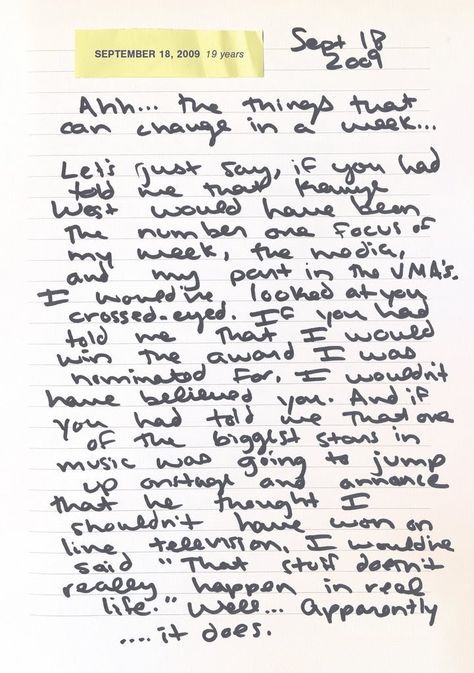 SEPTEMBER 18, 2009 19 years
Sept 18
2009
Ahh... the things that
can change in a week...
Let's just say, if you had
told me that Kanye
West would have been
the number one focus of
my week, the media,
and my part in the VMA's.
I would've looked at you
crossed-eyed. If you had
told me that I would
win the award I was
nominated for, I wouldn't
have believed you. And if
you had told me that one
of the biggest stars in
music was going to jump
up onstage and announce
that he thought I
shouldn't have won on
live television, I would've
said "That stuff doesn't
really happen in real
life." Well... apparently
.... it does.